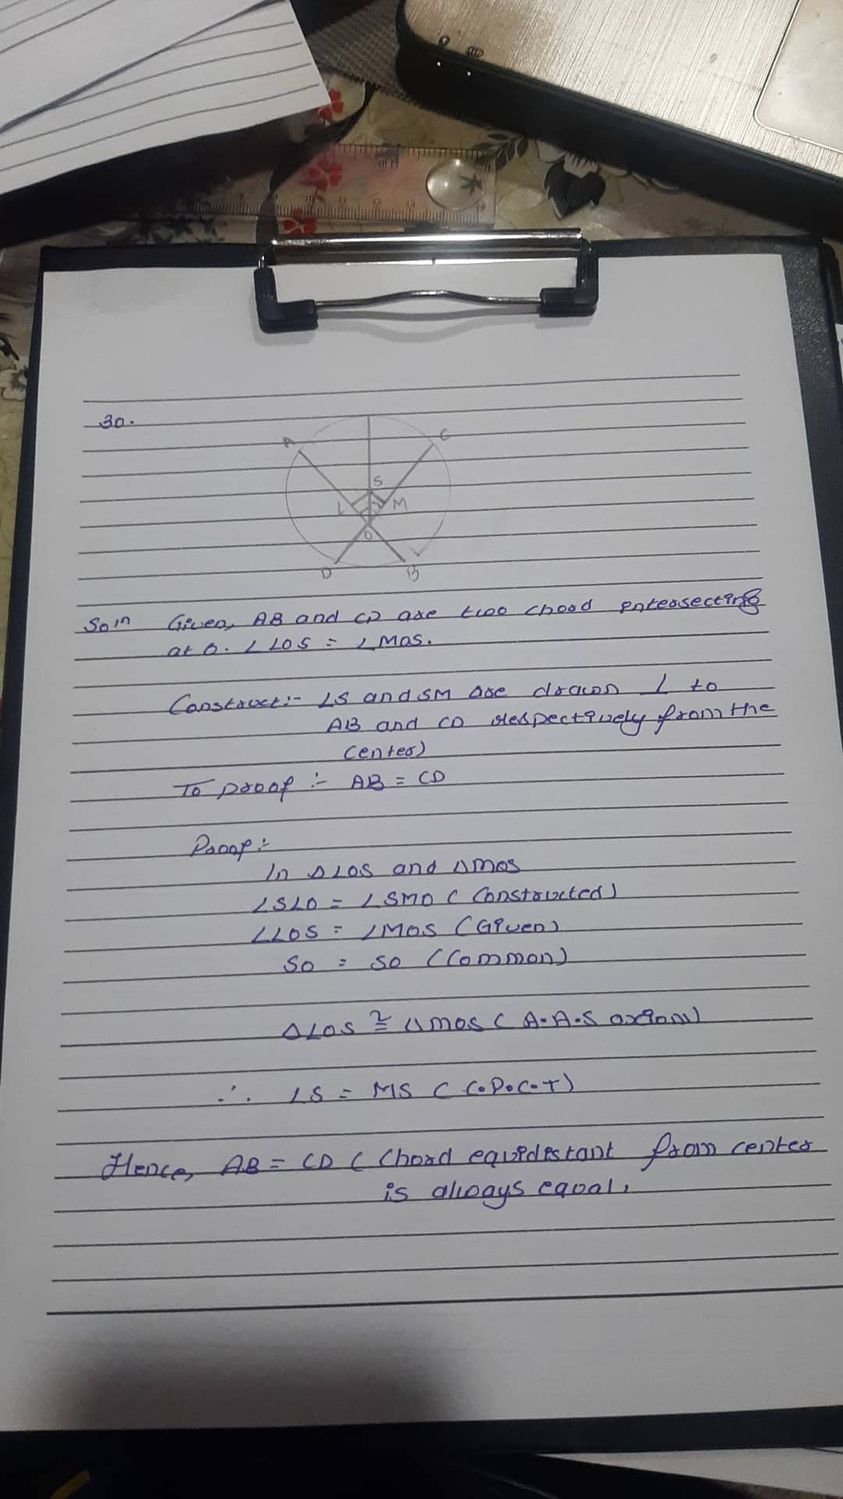 30.
A
C
S
L
M
O
D
B
Soln Given, AB and CD are two chood intersecting
at O. ∠LOS = ∠MOS.
Construct:- LS and SM are drawn ⊥ to
AB and CD respectively from the
center)
To proof :- AB = CD
Proof:-
In △LOS and △MOS
∠SLO = ∠SMO (Constructed)
∠LOS = ∠MOS (Given)
SO = SO (Common)
△LOS ≅ △MOS (A.A.S axiom)
∴ LS = MS (C.P.C.T)
Hence, AB = CD (Chord equidistant from center
is always equal.